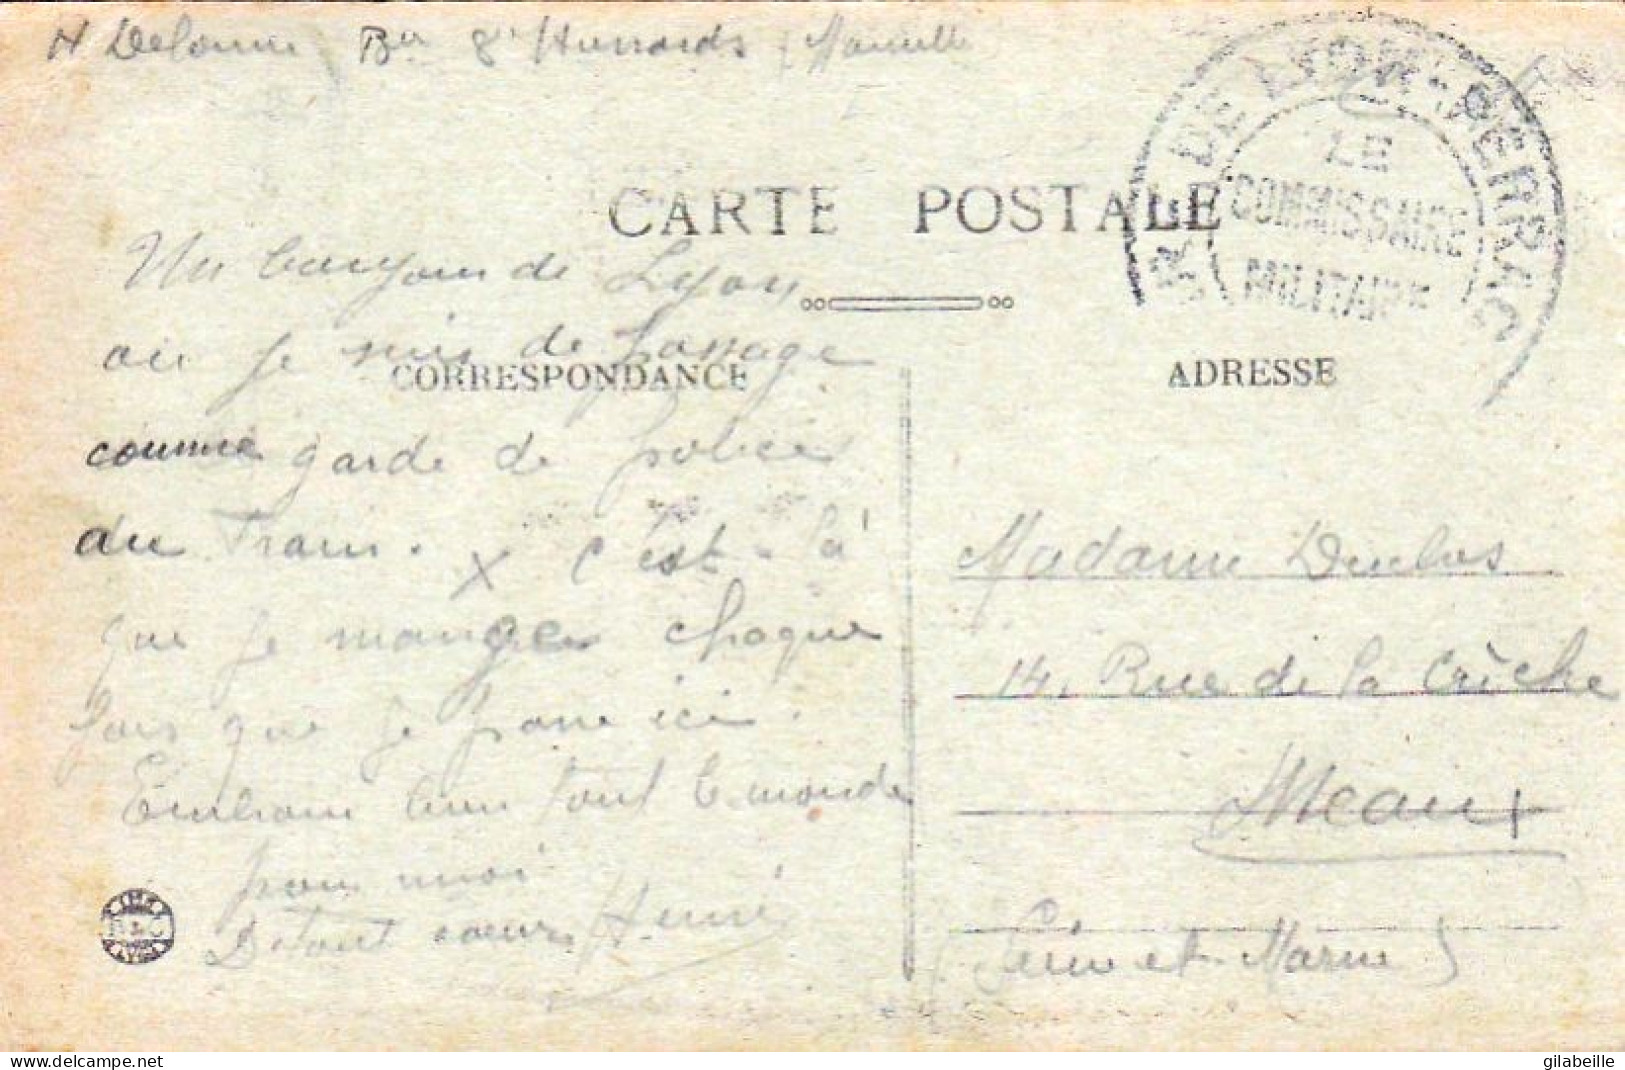 H Delorme Ber 8e Hussards Marseille
GARE DE LYON-PERRACHE
LE
COMMISSAIRE
MILITAIRE
CARTE POSTALE
CORRESPONDANCE
ADRESSE
Un bonjour de Lyon
où je suis de passage
comme garde de police
du Train. X c'est là
que je mange chaque
fois que je passe ici.
Embrasse bien tout le monde
pour moi
De tout coeur, Henri
Madame Duclos
14, Rue de la Crèche
Meaux
(Seine et Marne)
delcampe.net
gilabeille